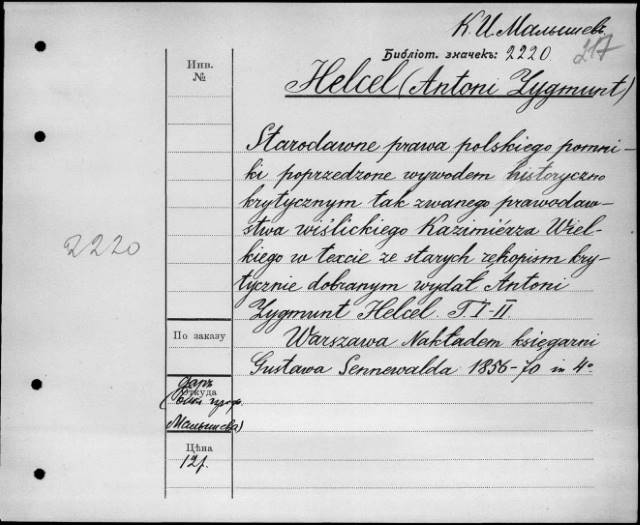 К. И. Малышевъ
217
Библіот. значекъ: 2220.
Инв.
№
Helcel (Antoni Zygmunt)
Starodawne prawa polskiego pomni-
ki poprzedzone wywodem historyczno
krytycznym tak zwanego prawodaw-
stwa wiślickiego Kazimiérza Wiel-
kiego w texcie ze starych rękopism kry-
tycznie dobranym wydał Antoni
Zygmunt Helcel. T. I-II.
2220
Warszawa Nakładem księgarni
Gustawa Sennewalda 1856-70 in 4º
По заказу
Откуда
Даръ
проф.
Малышева)
Цѣна
12 р.